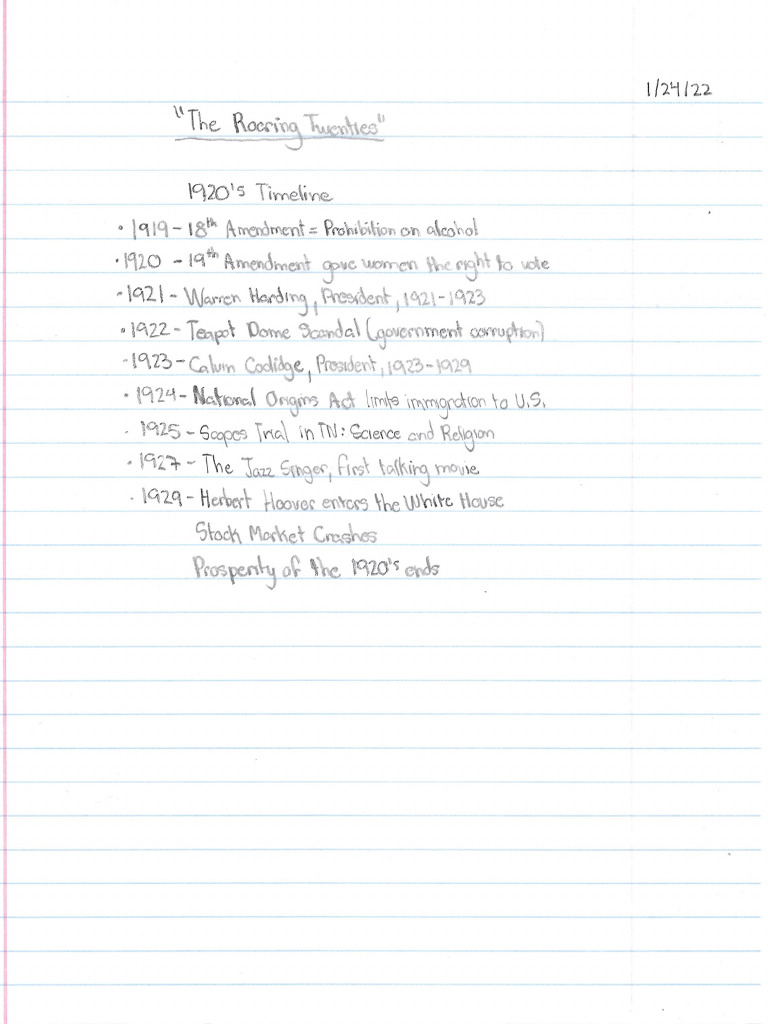 1/24/22
"The Roaring Twenties"
1920's Timeline
• 1919 - 18th Amendment = Prohibition on alcohol
• 1920 - 19th Amendment gave women the right to vote
• 1921 - Warren Harding, President, 1921-1923
• 1922 - Teapot Dome Scandal (government corruption)
• 1923 - Calvin Coolidge, President, 1923-1929
• 1924 - National Origins Act limits immigration to U.S.
• 1925 - Scopes Trial in TN: Science and Religion
• 1927 - The Jazz Singer, first talking movie
• 1929 - Herbert Hoover enters the White House
Stock Market Crashes
Prosperity of the 1920's ends